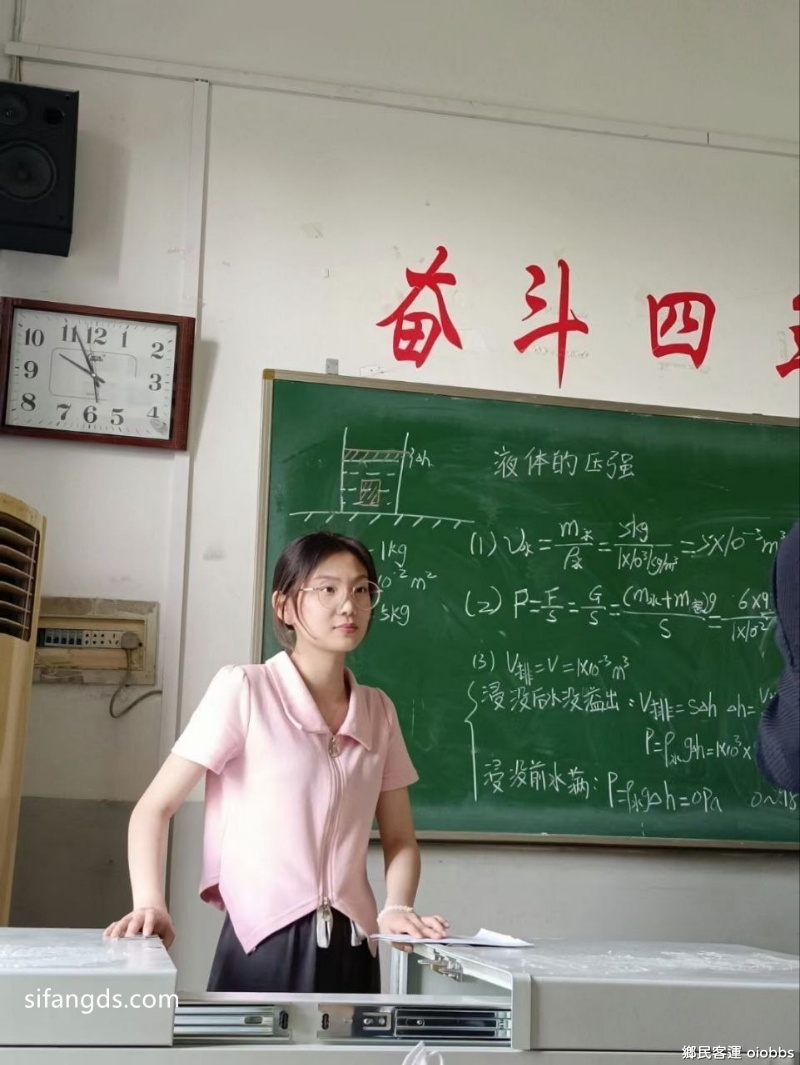 奋斗四
11 12 1
10 2
9 3
8 4
7 6 5
Δh
液体的压强
1kg
10⁻² m²
5kg
(1) V水 = m水/ρ水 = 5kg/1×10³kg/m³ = 5×10⁻³ m³
(2) P = F/S = G/S = (m水+m容)g/S = 6×9
(3) V排 = V = 1×10⁻³ m³
浸没后水没溢出: V排 = SΔh Δh = V
P = ρ水gΔh = 1×10³×
浸没前水满: P = ρ水gΔh = 0Pa
sifangds.com
鄉民客運 oiobbs